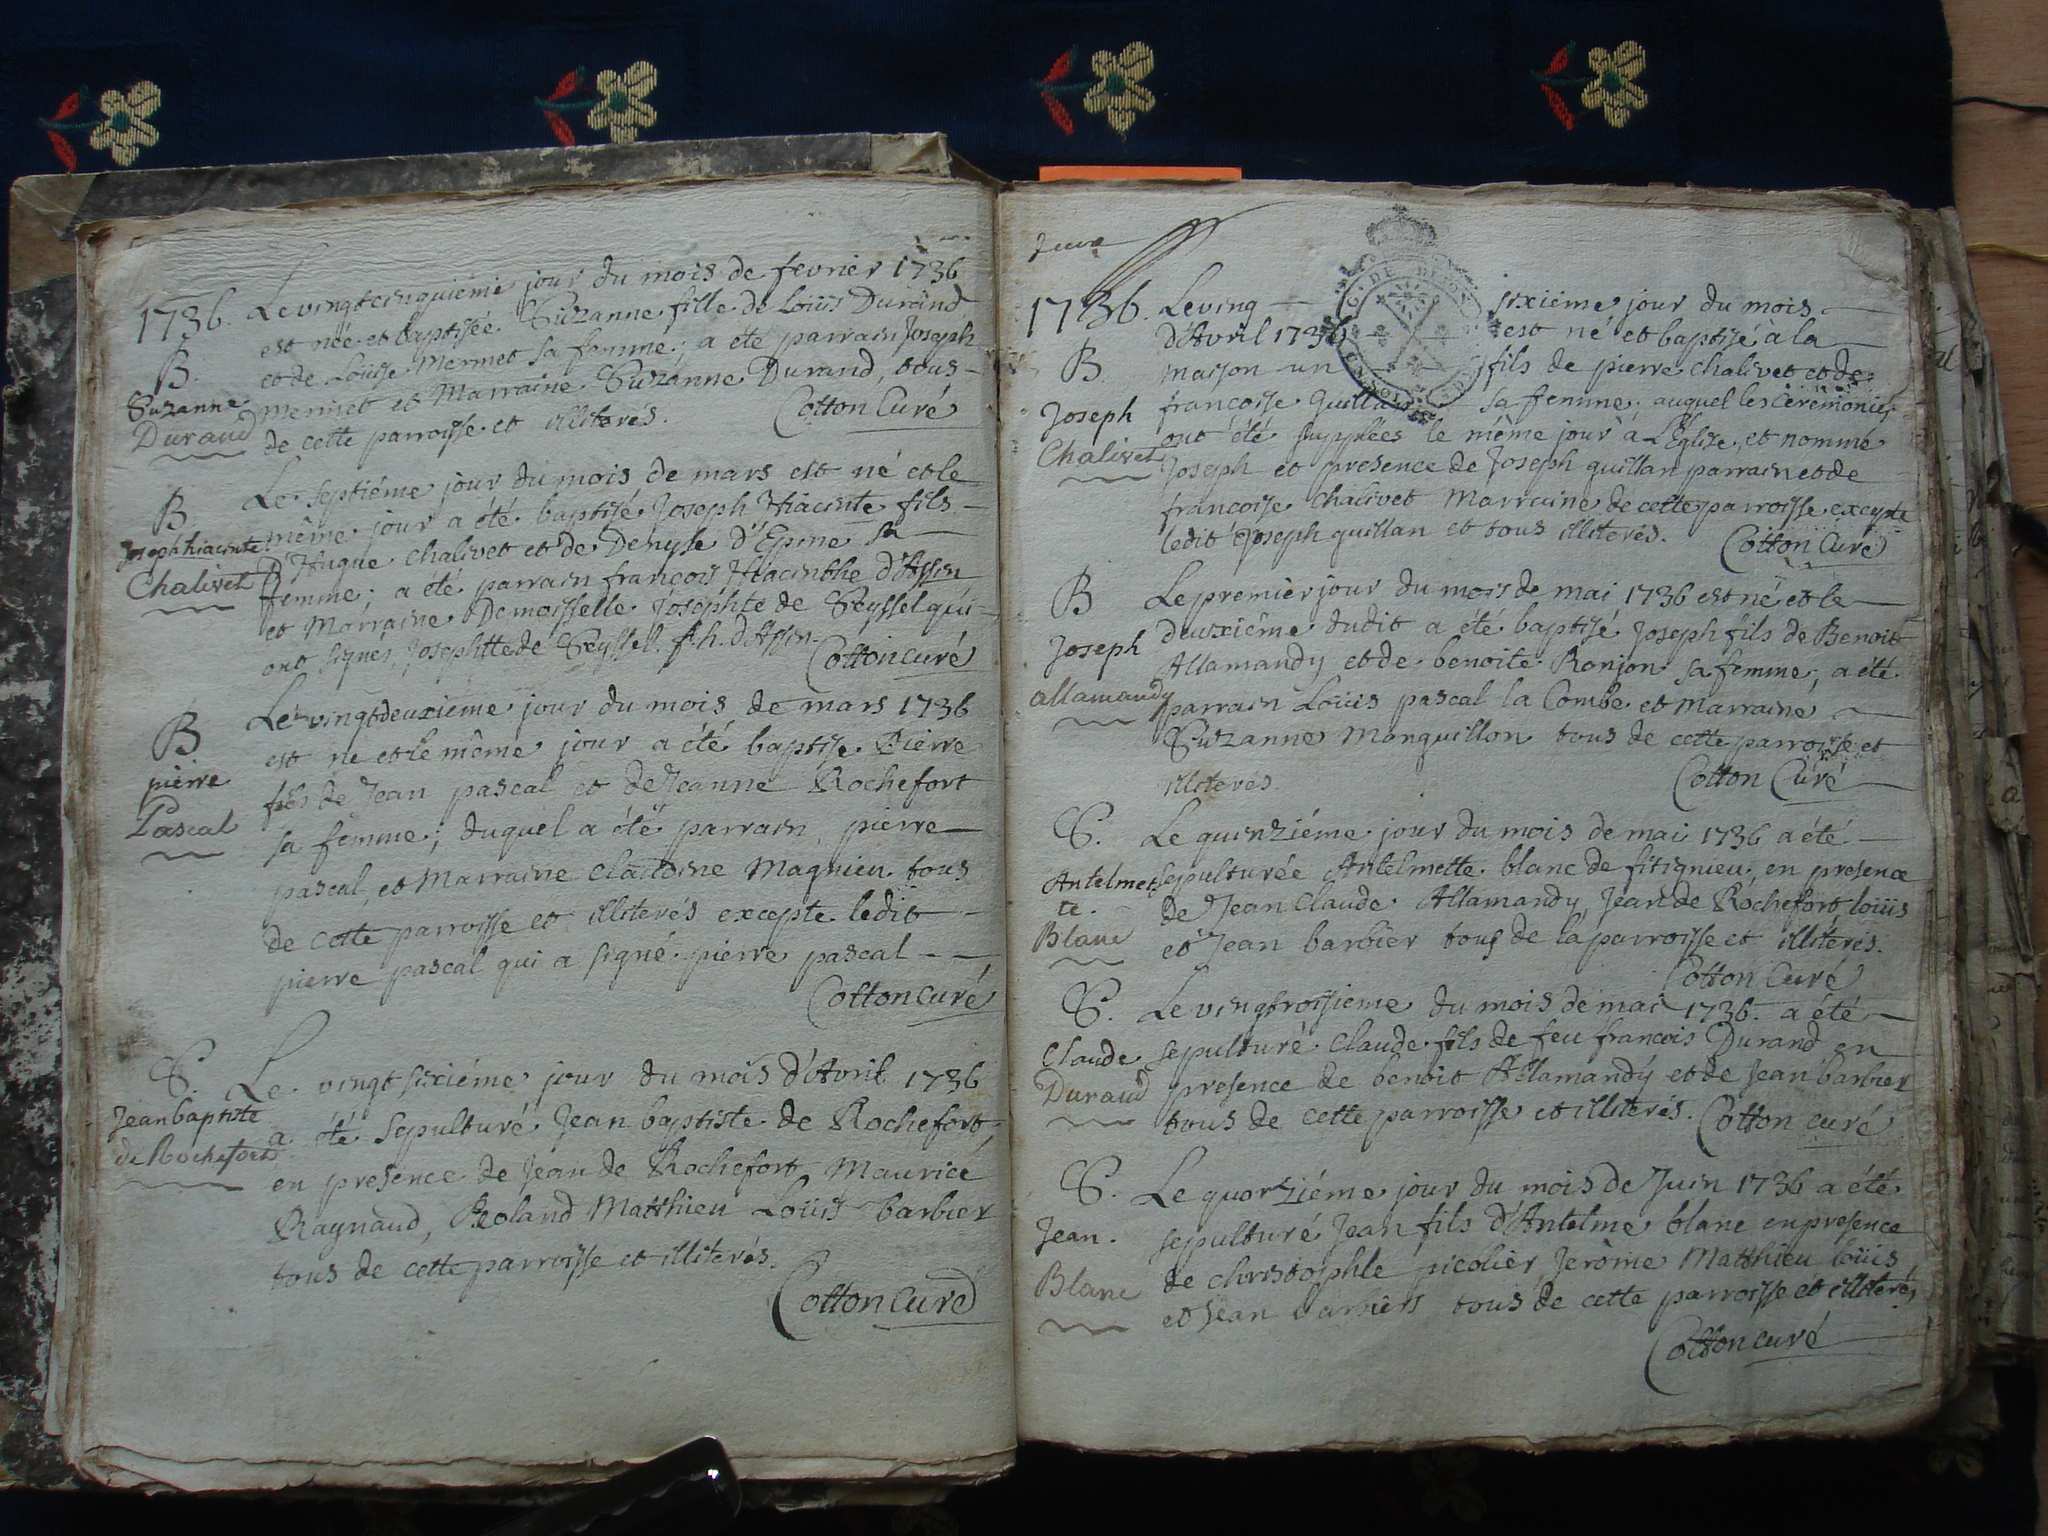 1736. Le vingtcinquiéme jour du mois de fevrier 1736
est née et baptisée Suzanne fille de Loüis Durand
B. et de Loüise Mermet sa femme; a été parrain Joseph
Suzanne Mermet et Marraine Suzanne Durand, tous
Durand de cette parroisse et illiterés. Cotton Curé
Le septiéme jour du mois de mars est né et le
B même jour a été baptisé Joseph Hiacinte fils
Joseph hiacinte D'Hugue Chalivet et de Denyse d'Epine sa
Chalivet femme; a été parrain françois Hiacinthe d'Assin
et Marraine Demoisselle Joséphte de Seyssel qui
ont signés, Josephtte de Seyssel. f. h. d'Assin.
Cotton curé
Le vingtdeuxiéme jour du mois de mars 1736
B est né et le même jour a été baptisé Pierre
pierre fils de Jean pascal et de Jeanne Rochefort
Pascal sa femme; duquel a été parrain pierre
pascal, et Marraine Claudine Magnieu tous
de cette parroisse et illiterés excepte ledit
pierre pascal qui a signé pierre pascal
Cotton curé
S. Le vingt sixiéme jour du mois d'Avril 1736
Jean baptiste a été sepulturé Jean baptiste de Rochefort
de Rochefort en presence de Jean de Rochefort, Maurice
Raynaud, Roland Matthieu Loüis barbier
tous de cette parroisse et illiterés.
Cotton Curé
1736. Le ving sixiéme jour du mois
G. DE DIJON
d'Avril 1736 est né et baptisé à la
B maison un fils de pierre chalivet et de
Joseph françoise quillan sa femme, auquel les Cerémonies
Chalivet ont été supplées le même jour à L'Eglise, et nommé
Joseph et presence de Joseph quillan parrain et de
françoise Chalivet Marraine de cette parroisse excepte
ledit Joseph quillan et tous illiterés. Cotton Curé
B Le premier jour du mois de mai 1736 est né et le
Joseph deuxiéme dudit a été baptisé Joseph fils de Benoit
Allamandy et de benoite Ronjon sa femme; a été
allamandy parrain Loüis pascal la Combe et Marraine
Suzanne Manquillon tous de cette parroisse et
illiterés. Cotton Curé
S. Le quinziéme jour du mois de mai 1736 a été
Antelmet- sepulturée Antelmette blanc de fitignieu, en presence
te. de Jean Claude Allamandy, Jean de Rochefort, loüis
Blanc et Jean barbier tous de la parroisse et illiterés.
Cotton Curé
S. Le vingtroisieme du mois de mai 1736. a été
Claude sepulturé Claude fils de feu francois Durand en
Durand presence de benoit Allamandy et de Jean barbier
tous de cette parroisse et illiterés. Cotton curé
S. Le quorziéme jour du mois de Juin 1736 a été
Jean. sepulturé Jean fils d'Antelme blanc en presence
Blanc de christophle picolier Jerôme Matthieu loüis
et Jean barbiers tous de cette parroisse et illiterés
Cotton curé